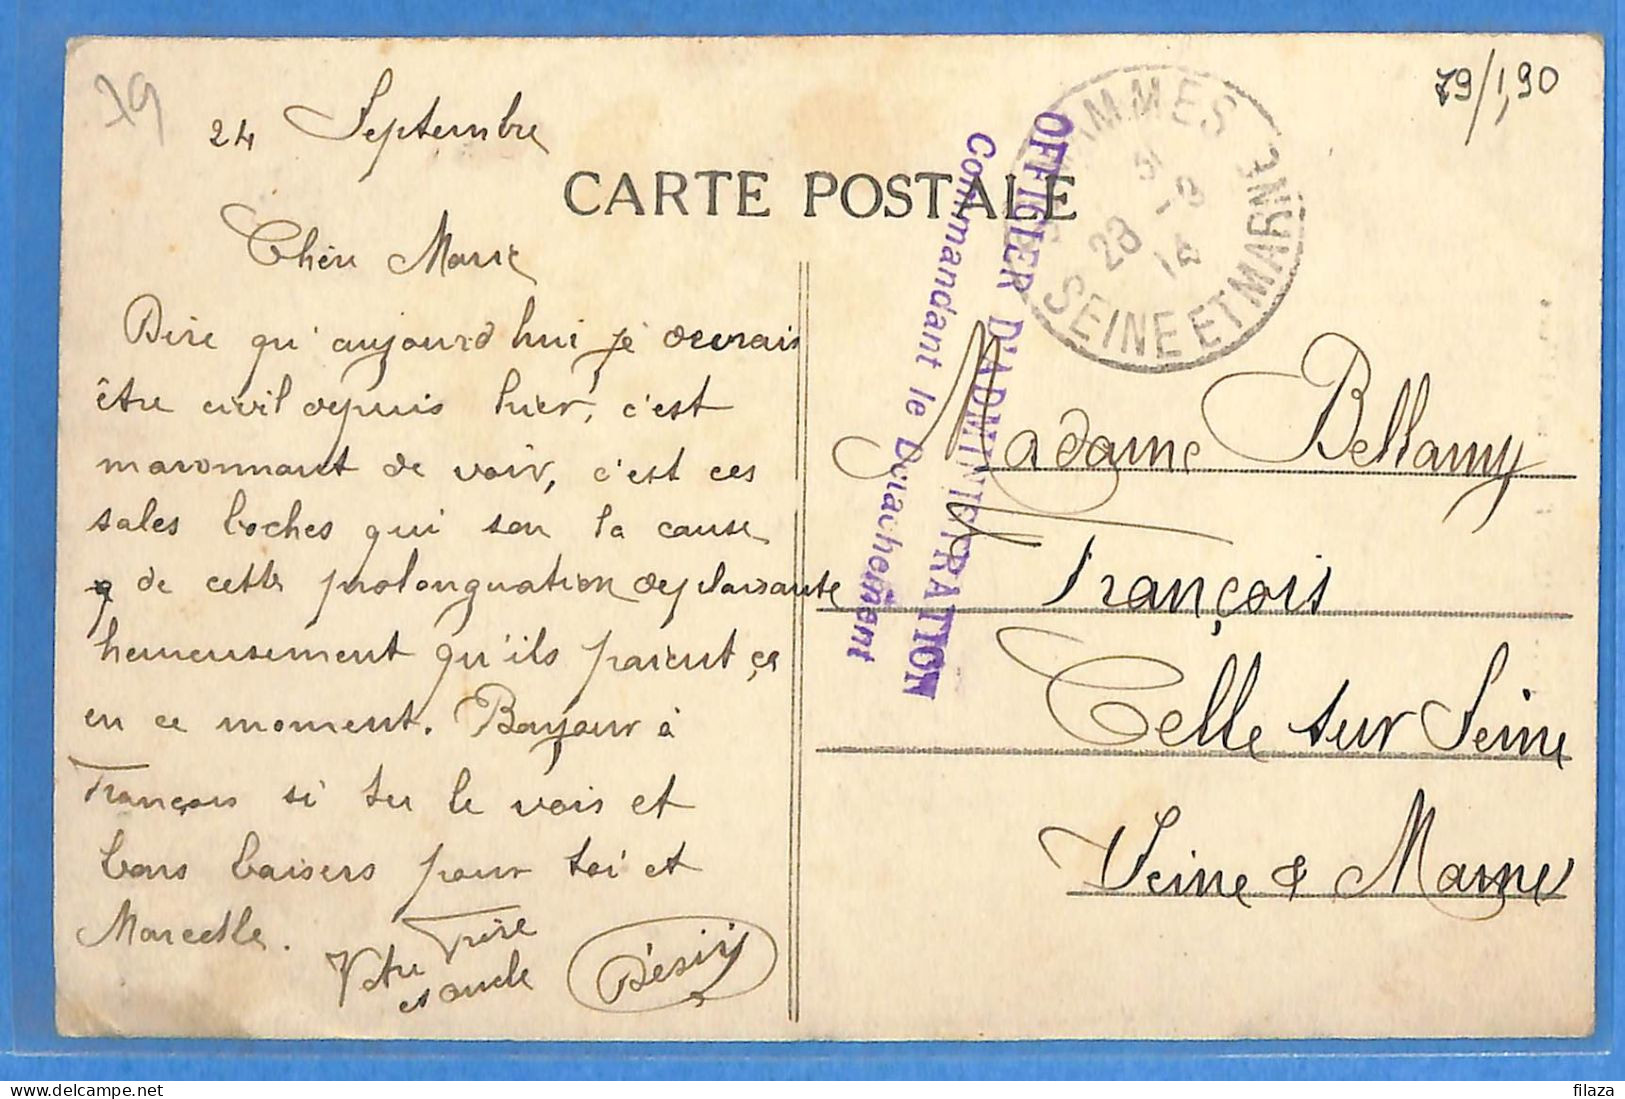 79
79/1,90
24 Septembre
CARTE POSTALE
Chère Marie
Dire qu'aujourd hui je devrais
être civil depuis hier, c'est
maronnant de voir, c'est ces
sales boches qui son la cause
de cette prolonguation deplaisante
heureusement qu'ils paient ça
en ce moment. Bonjour à
François si tu le vois et
bons baisers pour toi et
Marcelle.
Votre frère
et oncle
Désiré
OFFICIER D'ADMINISTRATION
Commandant le Détachement
SEINE ET MARNE
28 -8
14
Madame Bellamy
François
Celle sur Seine
Seine & Marne
filaza